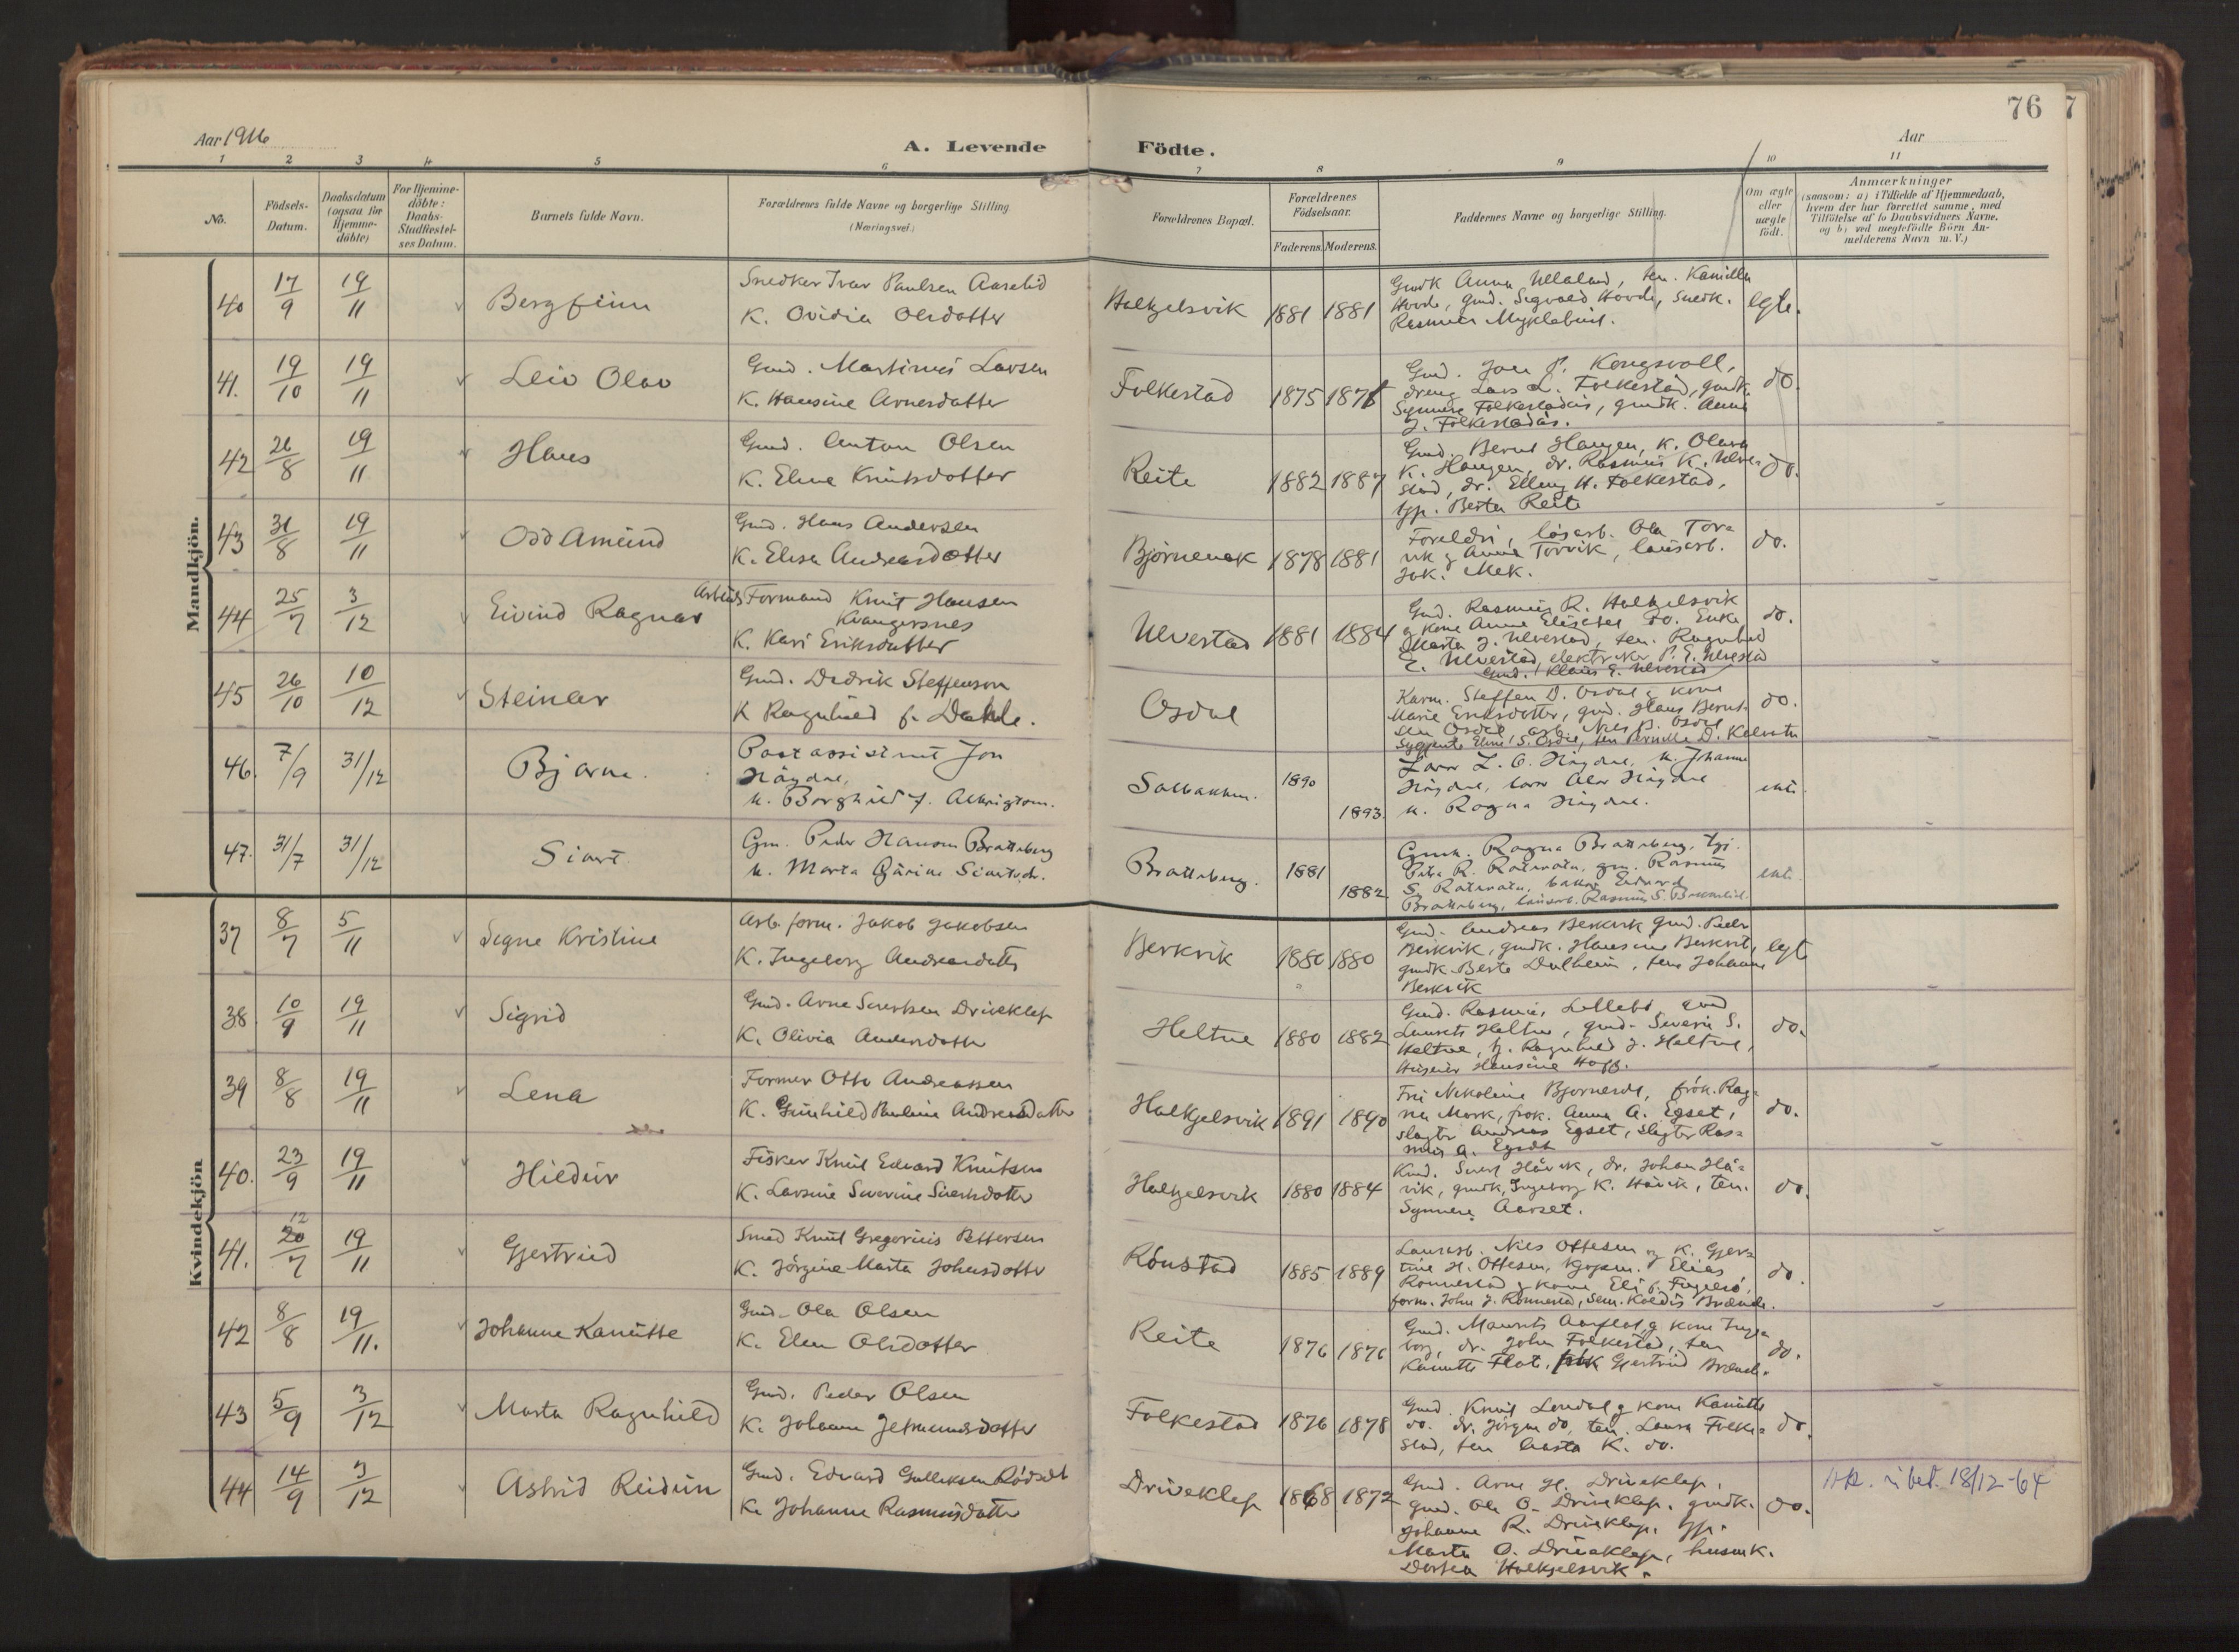 76
Aar 1916
A. Levende Födte.
Aar
1 2 3 4 5 6 7 8 9 10 11
No.
Födsels-Datum.
Daabsdatum (ogsaa for Hjemme-döbte)
For Hjemme-döbte: Daabs-Stadfæstel-ses Datum.
Barnets fulde Navn.
Forældrenes fulde Navne og borgerlige Stilling (Næringsvei.)
Forældrenes Bopæl.
Forældrenes Födselsaar.
Faderens. Moderens.
Faddernes Navne og borgerlige Stilling.
Om ægte eller uægte födt.
Anmærkninger
(saasom: a) i Tilfælde af Hjemmedaab,
hvem der har forrettet samme, med
Tilföielse af to Daabsvidners Navne.
og b) ved uægtefödte Börn An-
melderens Navn m. V.)
Mandkjön.
40 17/9 19/11 Bergfinn
Snedker Ivar Paulsen Aarelid
K. Ovidia Olsdotter
Halkjelsvik 1881 1881
Gmdk Anna Ulaland, ten. Kamilla
Hovde, gmd. Sigvald Hovde, snedk.
Rasmus Myklebust.
egte.
41. 19/10 19/11 Leiv Olav
Gmd. Martinus Larsen
K. Hansine Arnesdatter
Folkestad 1875
Gmd. Jon P. Kongsvoll,
dreng Lars L. Folkestad, gmdk.
Synnøve Folkestadås, gmdk. Anne
J. Folkestadås.
do.
42 26/8 19/11 Hans
Gmd. Anton Olsen
K. Eline Knutsdotter
Reite 1882 1887
Gmd. Bernt Haugen, K. Olava
K. Haugen, dr. Rasmus K. Ulve-
stad, dr. Elling H. Folkestad,
tjp. Berta Reite
do.
43 31/8 19/11 Odd Amund
Gmd. Hans Andersen
K. Elisa Andreasdotter
Bjørnenak 1878 1881
Foreldri, løsarb. Ola Tor-
vik g Anna Torvik, lausarb.
Jak. Mek.
do.
44 25/7 3/12 Eivind Ragnar
Arbeids Formand Knut Hansen
Kvangersnes
K. Kari Eriksdatter
Ulvestad 1881 1884
Gmd. Rasmus R. Halkjelsvik
g kone Anne Elisabet do. Enke
Marta J. Ulvestad, ten. Ragnhild
E. Ulvestad, elektriker P. E. Ulvestad
Gmd. Klaus E. Ulvestad
do.
45 26/10 10/12 Steinar
Gmd. Didrik Steffenson
K Ragnhild f. Dahle.
Osdal
Karm. Steffen D. Osdal g kone
Marie Eriksdotter, gmd. Hans Bernt-
sen Osdal, arb. Nils B. Osdal
Syjente Eline S. Osdal, ten Pernille D.
do.
46. 7/9 31/12 Bjarne.
Postassistent Jon
Høydal,
k. Borghild f. Albrigtsen.
Solbakken. 1890 1893.
Lærar L. O. Høydal, k. Johanne
Høydal, lærar Olav Høydal
k. Ragna Høydal.
ekte.
47. 31/7 31/12 Sivert
Gm. Peder Hansen Bratteberg
k. Marta Karine Sivertsdr.
Bratteberg. 1881 1882
Gmk. Ragna Bratteberg, tpi.
Petra R. Rotevatn, gm. Rasmus
S. Rotevatn, bakar Edvard
Brattberg, lausarb. Rasmus S.
ekte.
Kvindekjön
37 8/7 5/11 Signe Kristine
Arb. form. Jakob Jakobsen
K. Ingeborg Andreasdotter
Berkvik 1880 1880
Gmd. Andreas Berkvik Gmd. Peder
Berkvik, gmdk. Hansine Berkvik,
gmdk Berte Dalheim, tene Johanne
Berkvik
egte
38. 10/9 19/11 Sigrid
Gmd. Arne Sivertsen Driveklep
K. Olivia Andersdotter
Heltne 1880 1882
Gmd. Rasmus Lillebø, gmd
Laurits Heltne, gmd. Severin S.
Heltne, tj. Ragnhild J. Heltne,
Hansine Hoff.
do.
39 8/8 19/11 Lena
Former Otto Andreassen
K. Gunhild Pauline Andreasdatter
Halkjelsvik 1891 1890
Fru Nikoline Bjørnerdl, frøk. Rag-
na Mork, frøk. Anna A. Egset,
slagter Andreas Egset, slagter Ras-
mus A. Egset
do.
40. 23/9 19/11 Hildur
Fisker Knut Edvard Knutsen
K. Larsine Severine Sivertsdotter
Halkjelsvik 1880 1884
Kmd. Sivert Håvik, dr. Johan Hå-
vik, gmdk. Ingeborg K. Håvik, ten.
Synnøve Aarset.
do.
41. 12 20/7 19/11 Gjertrud
Smed Knut Gregorius Pettersen
K. Jørgine Marta Johnsdotter
Rønstad 1885 1889
Lausarb. Nils Ottesen og K. Gjer-
tine H. Ottesen, kjøpm. Elias
Rønnestad g kone Eli f.
form. John J. Rønnestad, sem. Koldis Brænde.
do.
42 8/8 19/11. Johanne Kanutte
Gmd. Ola Olsen
K. Elen Olsdotter
Reite 1876 1876
Gmd. Maurits Aarflot, g kone Inge-
borg, dr. John Folkestad, ten
Kanutte Flote, Gjertrud Brænde.
do.
43 5/9 3/12 Marta Ragnhild
Gmd. Peder Olsen
K. Johanne Jetmundsdotter
Folkestad 1876 1878
Gmd. Knut Londal g kone Kanutte
do. dr. Jørgen do, ten. Laura Folke-
stad, ten Aasta K. do.
do.
44 14/9 3/12 Astrid Reidun
Gmd. Edvard Gulliksen Rødset
K. Johanne Rasmusdotter
Driveklep 1868 1872
Gmd. Arne H. Driveklep,
gmd. Ole O. Driveklep, gmdk.
Johanne R. Driveklep, tjp.
Marta O. Driveklep, husmk.
Dortea Halkjelsvik.
do.
18/12-64